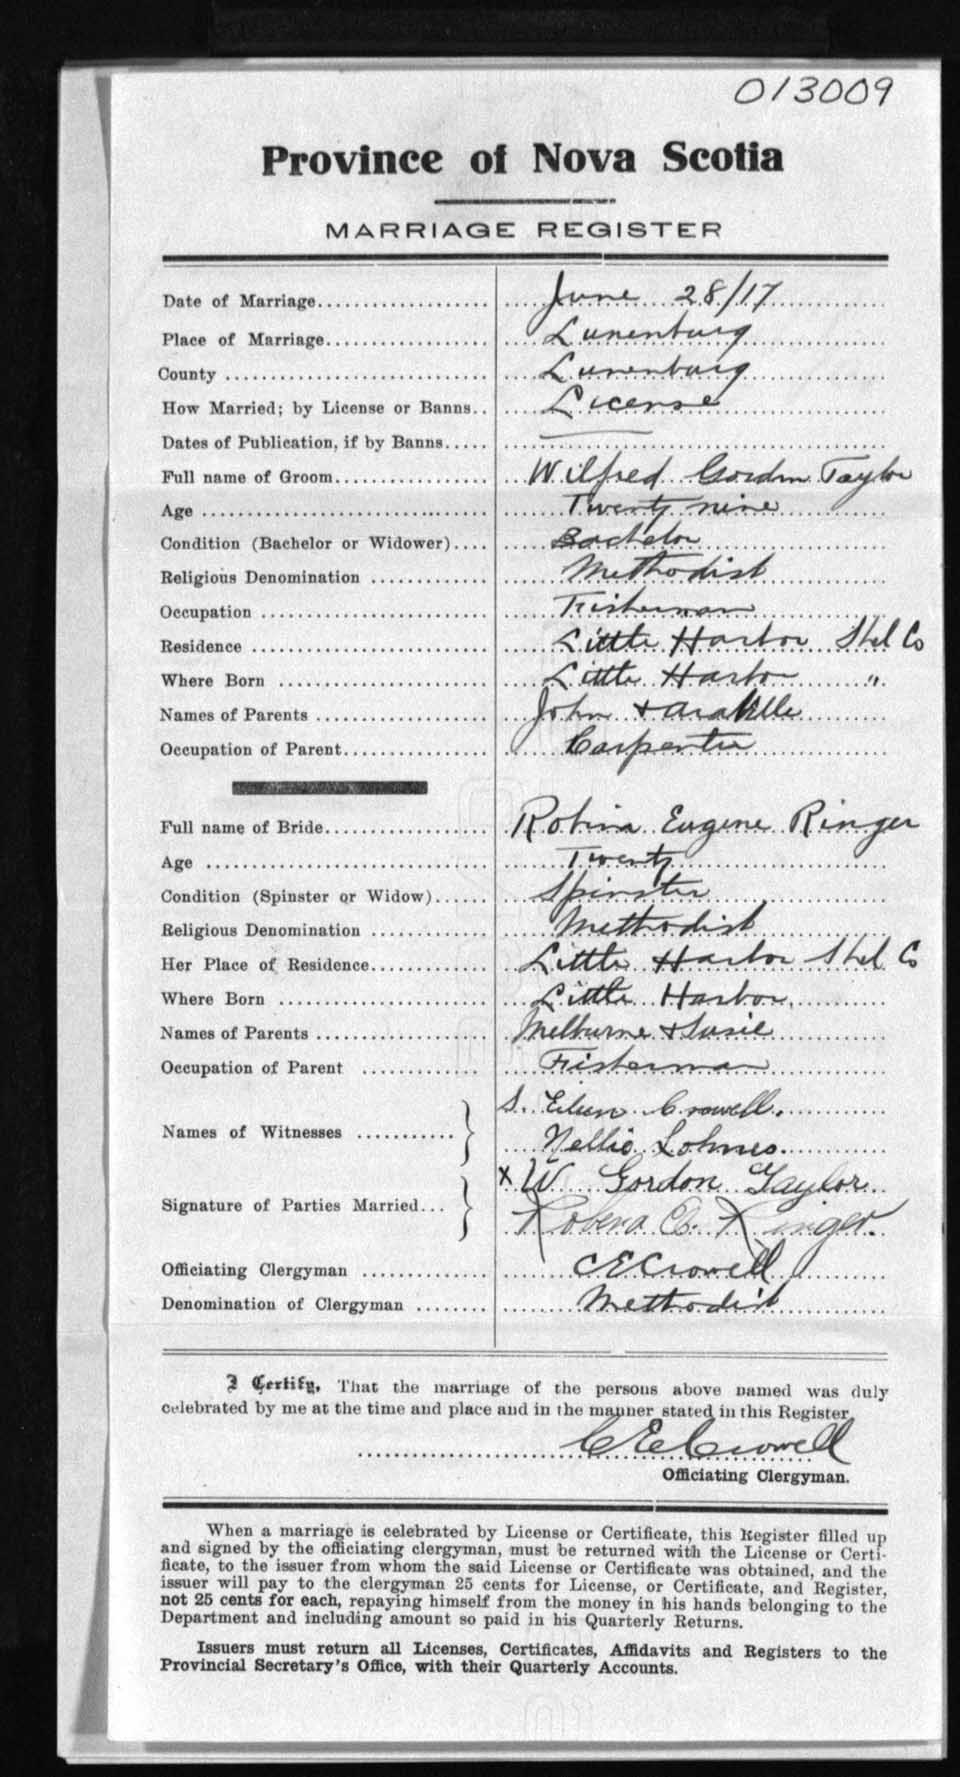 013009
Province of Nova Scotia
MARRIAGE REGISTER
Date of Marriage................... June 28/17
Place of Marriage.................. Lunenburg
County ............................. Lunenburg
How Married; by License or Banns.. License
Dates of Publication, if by Banns.....
Full name of Groom................. Wilfred Gordon Taylor
Age ............................... Twenty nine
Condition (Bachelor or Widower).... Bachelor
Religious Denomination ............. Methodist
Occupation ......................... Fisherman
Residence .......................... Little Harbor Shel Co
Where Born ....................... Little Harbor "
Names of Parents ................... John & Arabelle
Occupation of Parent................ Carpenter
Full name of Bride.................. Robina Eugene Ringer
Age ............................... Twenty
Condition (Spinster or Widow)...... Spinster
Religious Denomination ............. Methodist
Her Place of Residence............. Little Harbor Shel Co
Where Born ....................... Little Harbor
Names of Parents ................... Melburne & Susie
Occupation of Parent ............. Fisherman
Names of Witnesses ........... S. Eileen Crowell.
Nellie Lohnes.
Signature of Parties Married... x W Gordon Taylor
Robena E. Ringer.
Officiating Clergyman .............. C E Crowell
Denomination of Clergyman ........ Methodist
I Certify, That the marriage of the persons above named was duly
celebrated by me at the time and place and in the manner stated in this Register
C E Crowell
Officiating Clergyman.
When a marriage is celebrated by License or Certificate, this Register filled up
and signed by the officiating clergyman, must be returned with the License or Certi-
ficate, to the issuer from whom the said License or Certificate was obtained, and the
issuer will pay to the clergyman 25 cents for License, or Certificate, and Register,
not 25 cents for each, repaying himself from the money in his hands belonging to the
Department and including amount so paid in his Quarterly Returns.
Issuers must return all Licenses, Certificates, Affidavits and Registers to the
Provincial Secretary's Office, with their Quarterly Accounts.